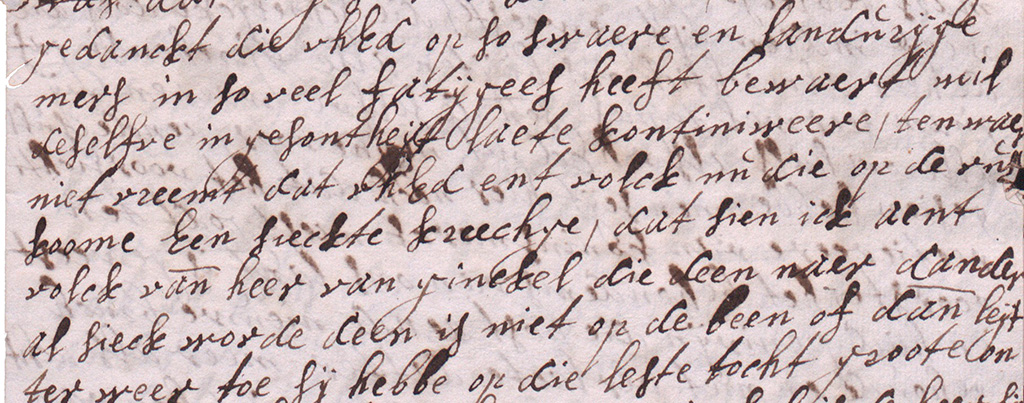 gedanckt die uhEd op so swaere en landurijge
mers in so veel fatijgees heeft bewaert wil
deselfve in gesontheijt laete kontiniweere, ten waer
niet vreemt dat uhEd ent volck nu die op de rus
koome Een sieckte kreechge, dat sien ick aent
volck van heer van ginckel die deen naer dander
al sieck worde deen is niet op de been of dan leijt
ter weer toe sij hebbe op die leste tocht groote on